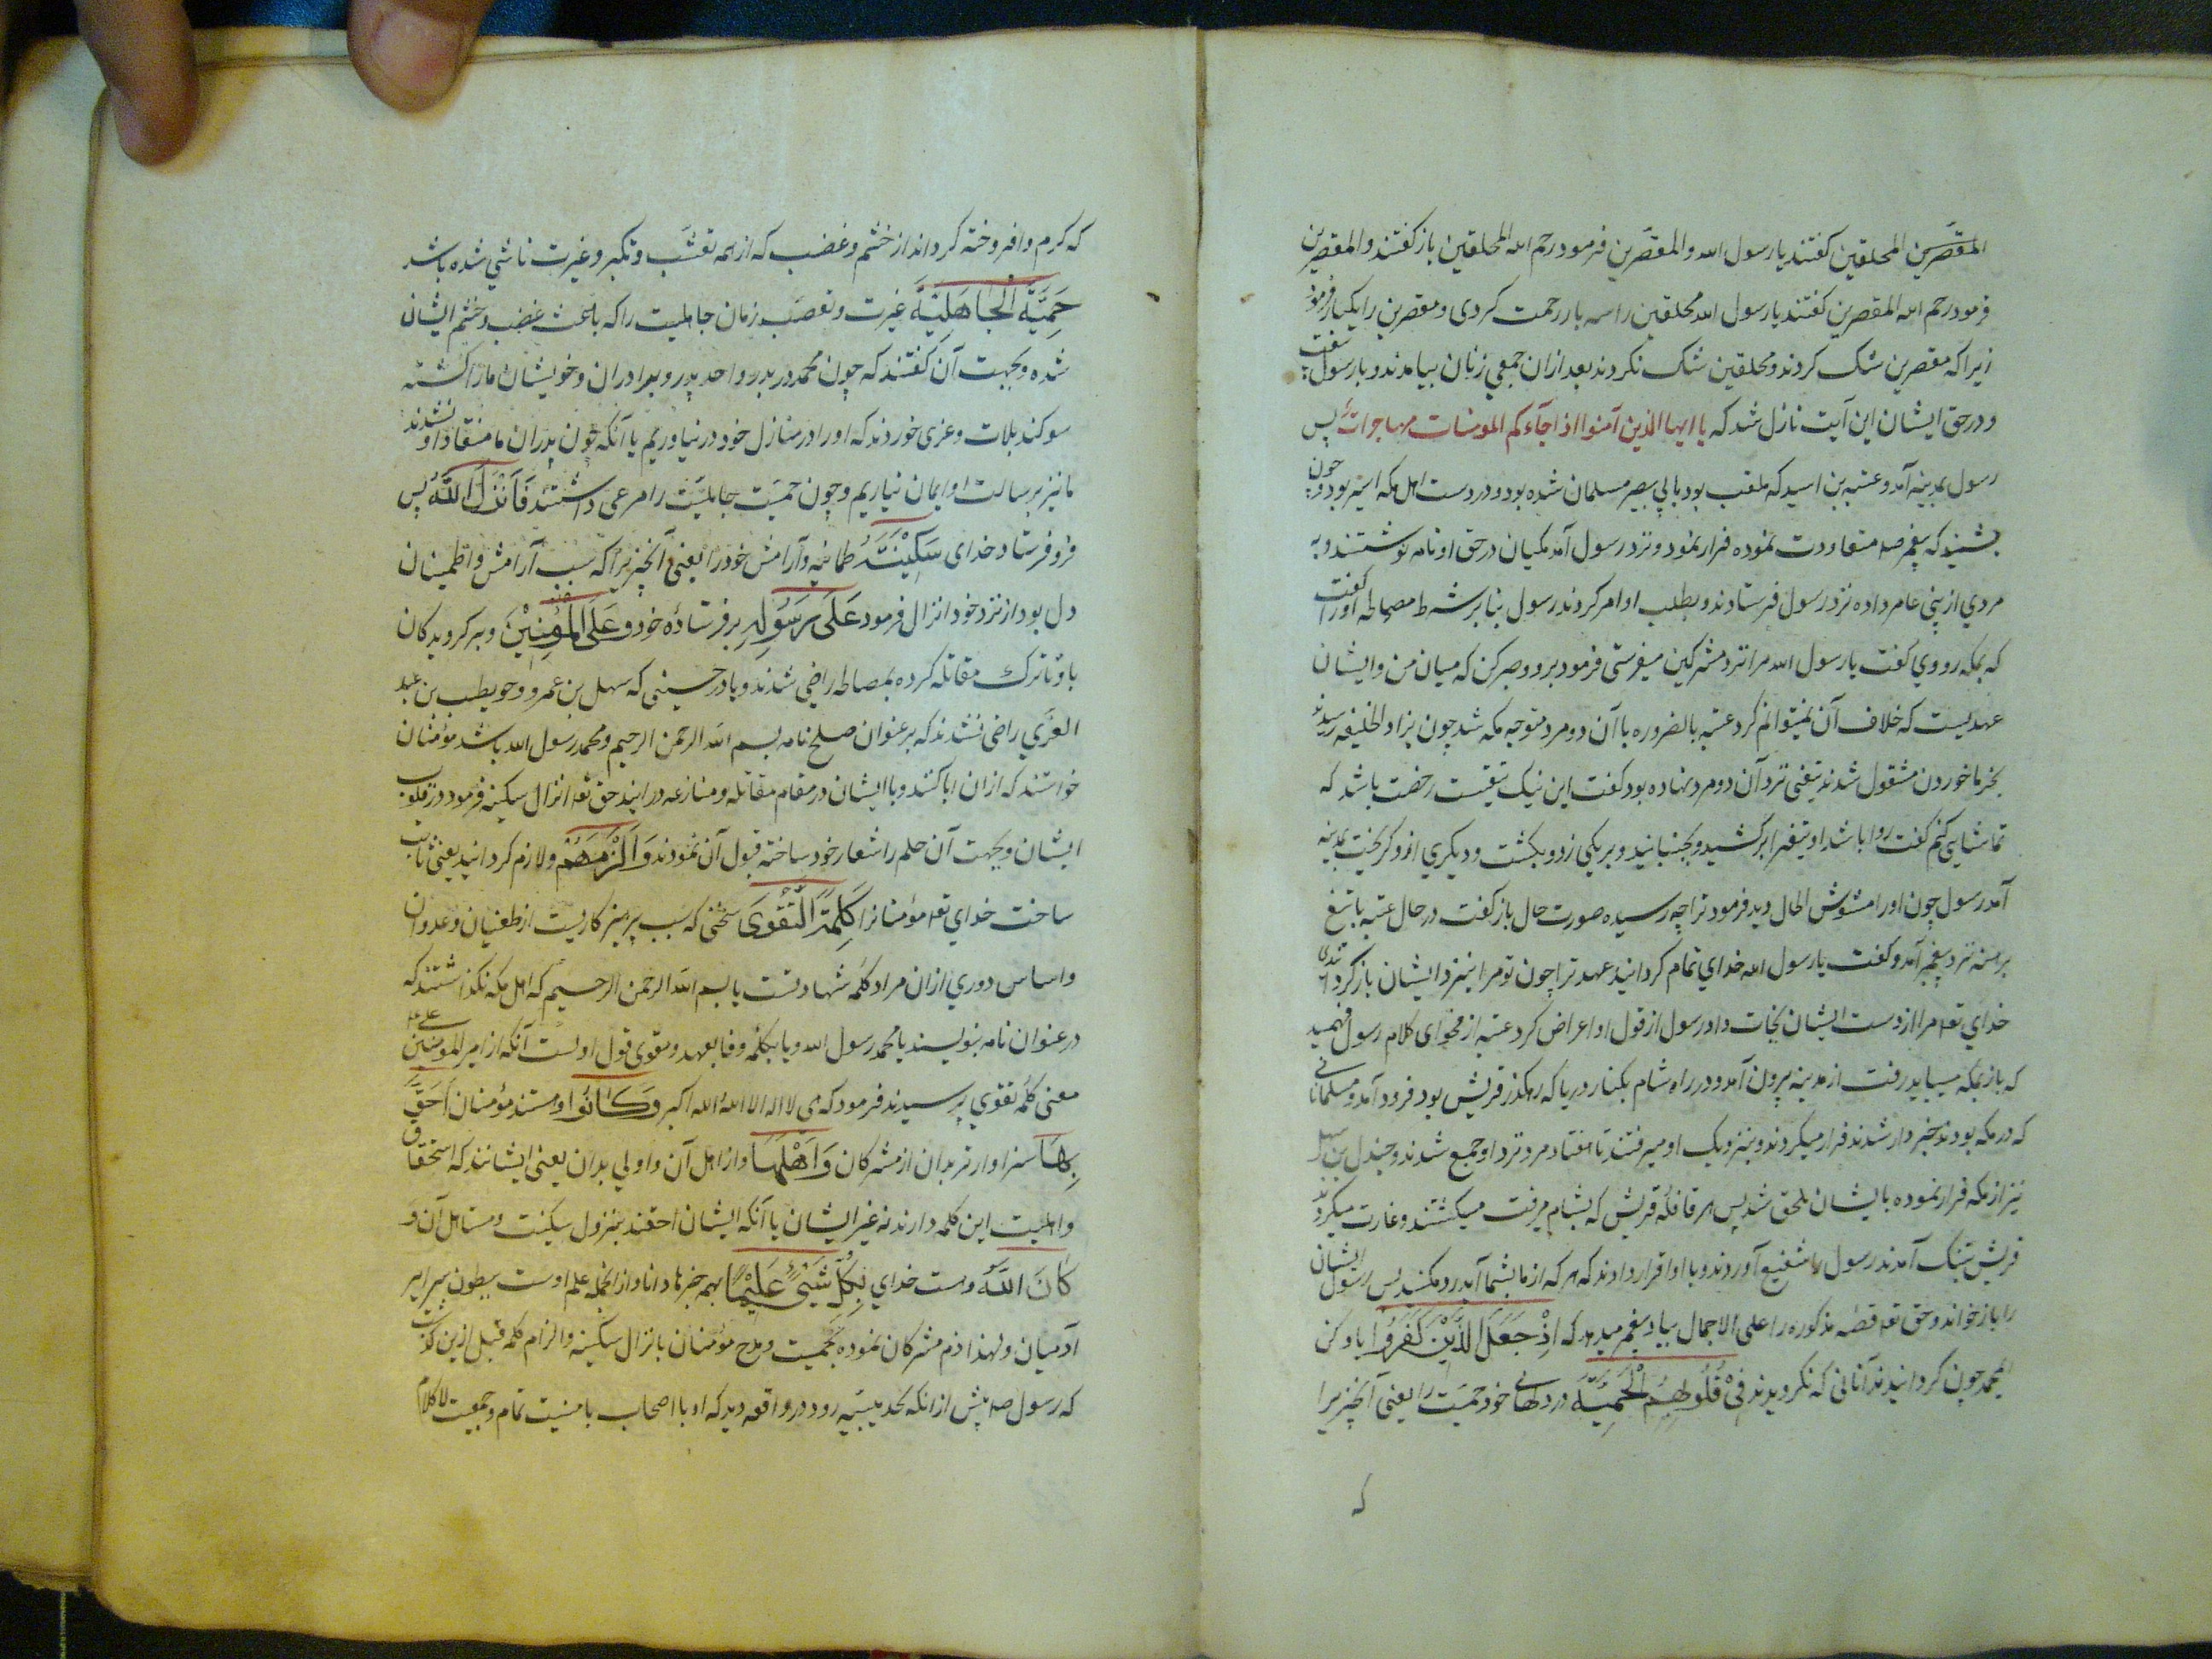 المقصّرین المحلقین کفتند یا رسول الله والمقصّرین فرمود رحم الله المحلقین باز کفتند والمقصرین
فرمود رحم الله المقصرین کفتند یا رسول الله محلقین را سه بار رحمت کردی و مقصرین را یکبار فرمود
زیرا که مقصرین شک کردند و محلقین شک نکردند بعد از ان جمعی زنان بیامدند و با رسول
و در حق ایشان این آیت نازل شد که یا ایها الذین آمنوا اذا جآءکم المومنات مهاجرات پس
رسول بمدینه آمد و عتبه بن اسید که ملقب بود بابی بصیر مسلمان شده بود و در دست اهل مکه اسیر بود و چون
بشنید که پیغمبر صم معاودت نموده فرار نمود و نزد رسول آمد مکیان در حق او نامه نوشتند و به
مردی از بنی عامر داده نزد رسول فرستادند و بطلب او امر کردند رسول بنا بر شرط مصالحه او را کفت
که بمکه رو وی کفت یا رسول الله مرا نزد مشرکین میفرستی فرمود برو و صبر کن که میان من و ایشان
عهدیست که خلاف آن نمیتوانم کرد عتبه بالضروره با آن دو مرد متوجه مکه شد چون بذو الحلیفه رسیدند
بخرما خوردن مشغول شدند تیغی نزد آن دو مرد نهاده بود کفت این نیک تیغیست رخصت باشد که
تماشایی کنم کفت روا باشد او تیغ را برکشید و بجنبانید و بر یکی زد و بکشت و دیکری از و کریخت بمدینه
آمد رسول چون او را مشوش الحال دید فرمود ترا چه رسیده صورت حال باز کفت در حال عتبه با تیغ
برهنه نزد پیغمبر آمد و کفت یا رسول الله خدای تمام کردانید عهد ترا چون تو مرا بنزد ایشان باز کردا ندی
خدای تعه مرا از دست ایشان نجات داد رسول از قول او اعراض کرد عتبه از فحوای کلام رسول فهمید
که باز بمکه میباید رفت از مدینه بیرون آمد و در راه شام بکنار دریا که رهکذر قریش بود فرود آمد و مسلمانانی
که در مکه بودند خبردار شدند فرار میکردند و بنزدیک او میرفتند تا هفتاد مرد نزد او جمع شدند و جندل بن سهل
نیز از مکه فرار نموده با یشان ملحق شد پس هر قافله قریش که بشام میرفت میکشتند و غارت میکردند
قریش بتنک آمدند رسول را شفیع آوردند و با او اقرار دادند که هر که از ما بشما آید رد مکنید پس رسول ایشان
را باز خواند و حق تعه قصه مذکوره را علی الاجمال بیاد پیغمبر میدهد که اِذْ جَعَلَ الَّذِیْنَ کَفَرُوا یاد کن
ای محمد چون کردانیدند آنانی که نکرویدند فِیْ قُلُوبِهِمُ الْحَمِیَّةَ در دلهای خود حمیّت را یعنی آنچیز را
که
که کرم و افروخته کرداند از خشم و غضب که از همه تعصّب و تکبر و غیرت ناشی شده باشد
حَمِیَّةَ الْجَاهِلِیَّةِ غیرت و تعصب زمان جاهلیت را که باعث غضب و خشم ایشان
شده و بجهت آن کفتند که چون محمد در بدر و احد پدر و برادران و خویشان ما را کشته
سوکند بلات و عزی خوردند که او را در منازل خود در نیاوریم یا آنکه چون پدران ما منقاد او نشدند
ما نیز برسالت او ایمان نیاریم و چون حمیت جاهلیت را مرعی داشتند فَاَنْزَلَ اللّٰهُ پس
فرو فرستاد خدای سَکِیْنَتَهُ طمانیه و آرامش خود را یعنی آنچیز را که سبب آرامش و اطمینان
دل بود از نزد خود انزال فرمود عَلَی رَسُولِهِ بر فرستاده خود وَ عَلَی الْمُؤْمِنِیْنَ و بر کرویدکان
باو تا ترک مقاتله کرده بمصالحه راضی شدند و یا در حینی که سهل بن عمرو و حویطب بن عبد
العزّی راضی نشدند که بر عنوان صلح نامه بسم الله الرحمن الرحیم و محمد رسول الله باشد مؤمنان
خواستند که از ان ابا کنند و با ایشان در مقام مقاتله و منازعه در ایند حق تعه انزال سکینه فرمود در قلوب
ایشان و بجهت آن حلم را شعار خود ساخته قبول آن نمودند وَ اَلْزَمَهُمْ و لازم کردانید یعنی ثابت
ساخت خدای تعه مؤمنانرا کَلِمَةَ التَّقْوَی سخنی که سبب پرهیزکاریست از طغیان و عدوان
و اساس دوری از ان مراد کلمه شهادتست یا بسم الله الرحمن الرحیم که اهل مکه نکذاشتند که
در عنوان نامه بنویسند یا محمد رسول الله و یا بکلمه وفا بعهد و مقوی قول اولست آنکه از امیر المومنین علی عم
معنی کلمه تقوی پرسیدند فرمود که هی لا اله الا الله و الله اکبر وَ کَانُوا و هستند مؤمنان اَحَقَّ
بِهَا سزاوارتر بدان از مشرکان وَ اَهْلَهَا و از اهل آن و اولی بدان یعنی ایشانند که استحقاق
و اهلیت این کلمه دارند نه غیر ایشان یا آنکه ایشان احقند بنزول سکینت و مستاهل آن وَ
کَانَ اللّٰهُ و هست خدای بِکُلِّ شَیْءٍ عَلِیْمًا بهمه چیزها دانا و از انجمله علم اوست ببطون سرایر
آدمیان و لهذا ذم مشرکان نموده بحمیت و مدح مؤمنان بانزال سکینه و الزام کلمه قبل ازین کذشت
که رسول صم پیش از انکه بحدیبیّه رود در واقعه دید که او با اصحاب با منیت تمام و جمعیت لا کلام